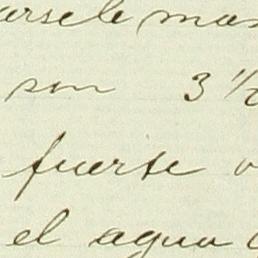 arsele mas
son 3 1/2
fuerte
el agua